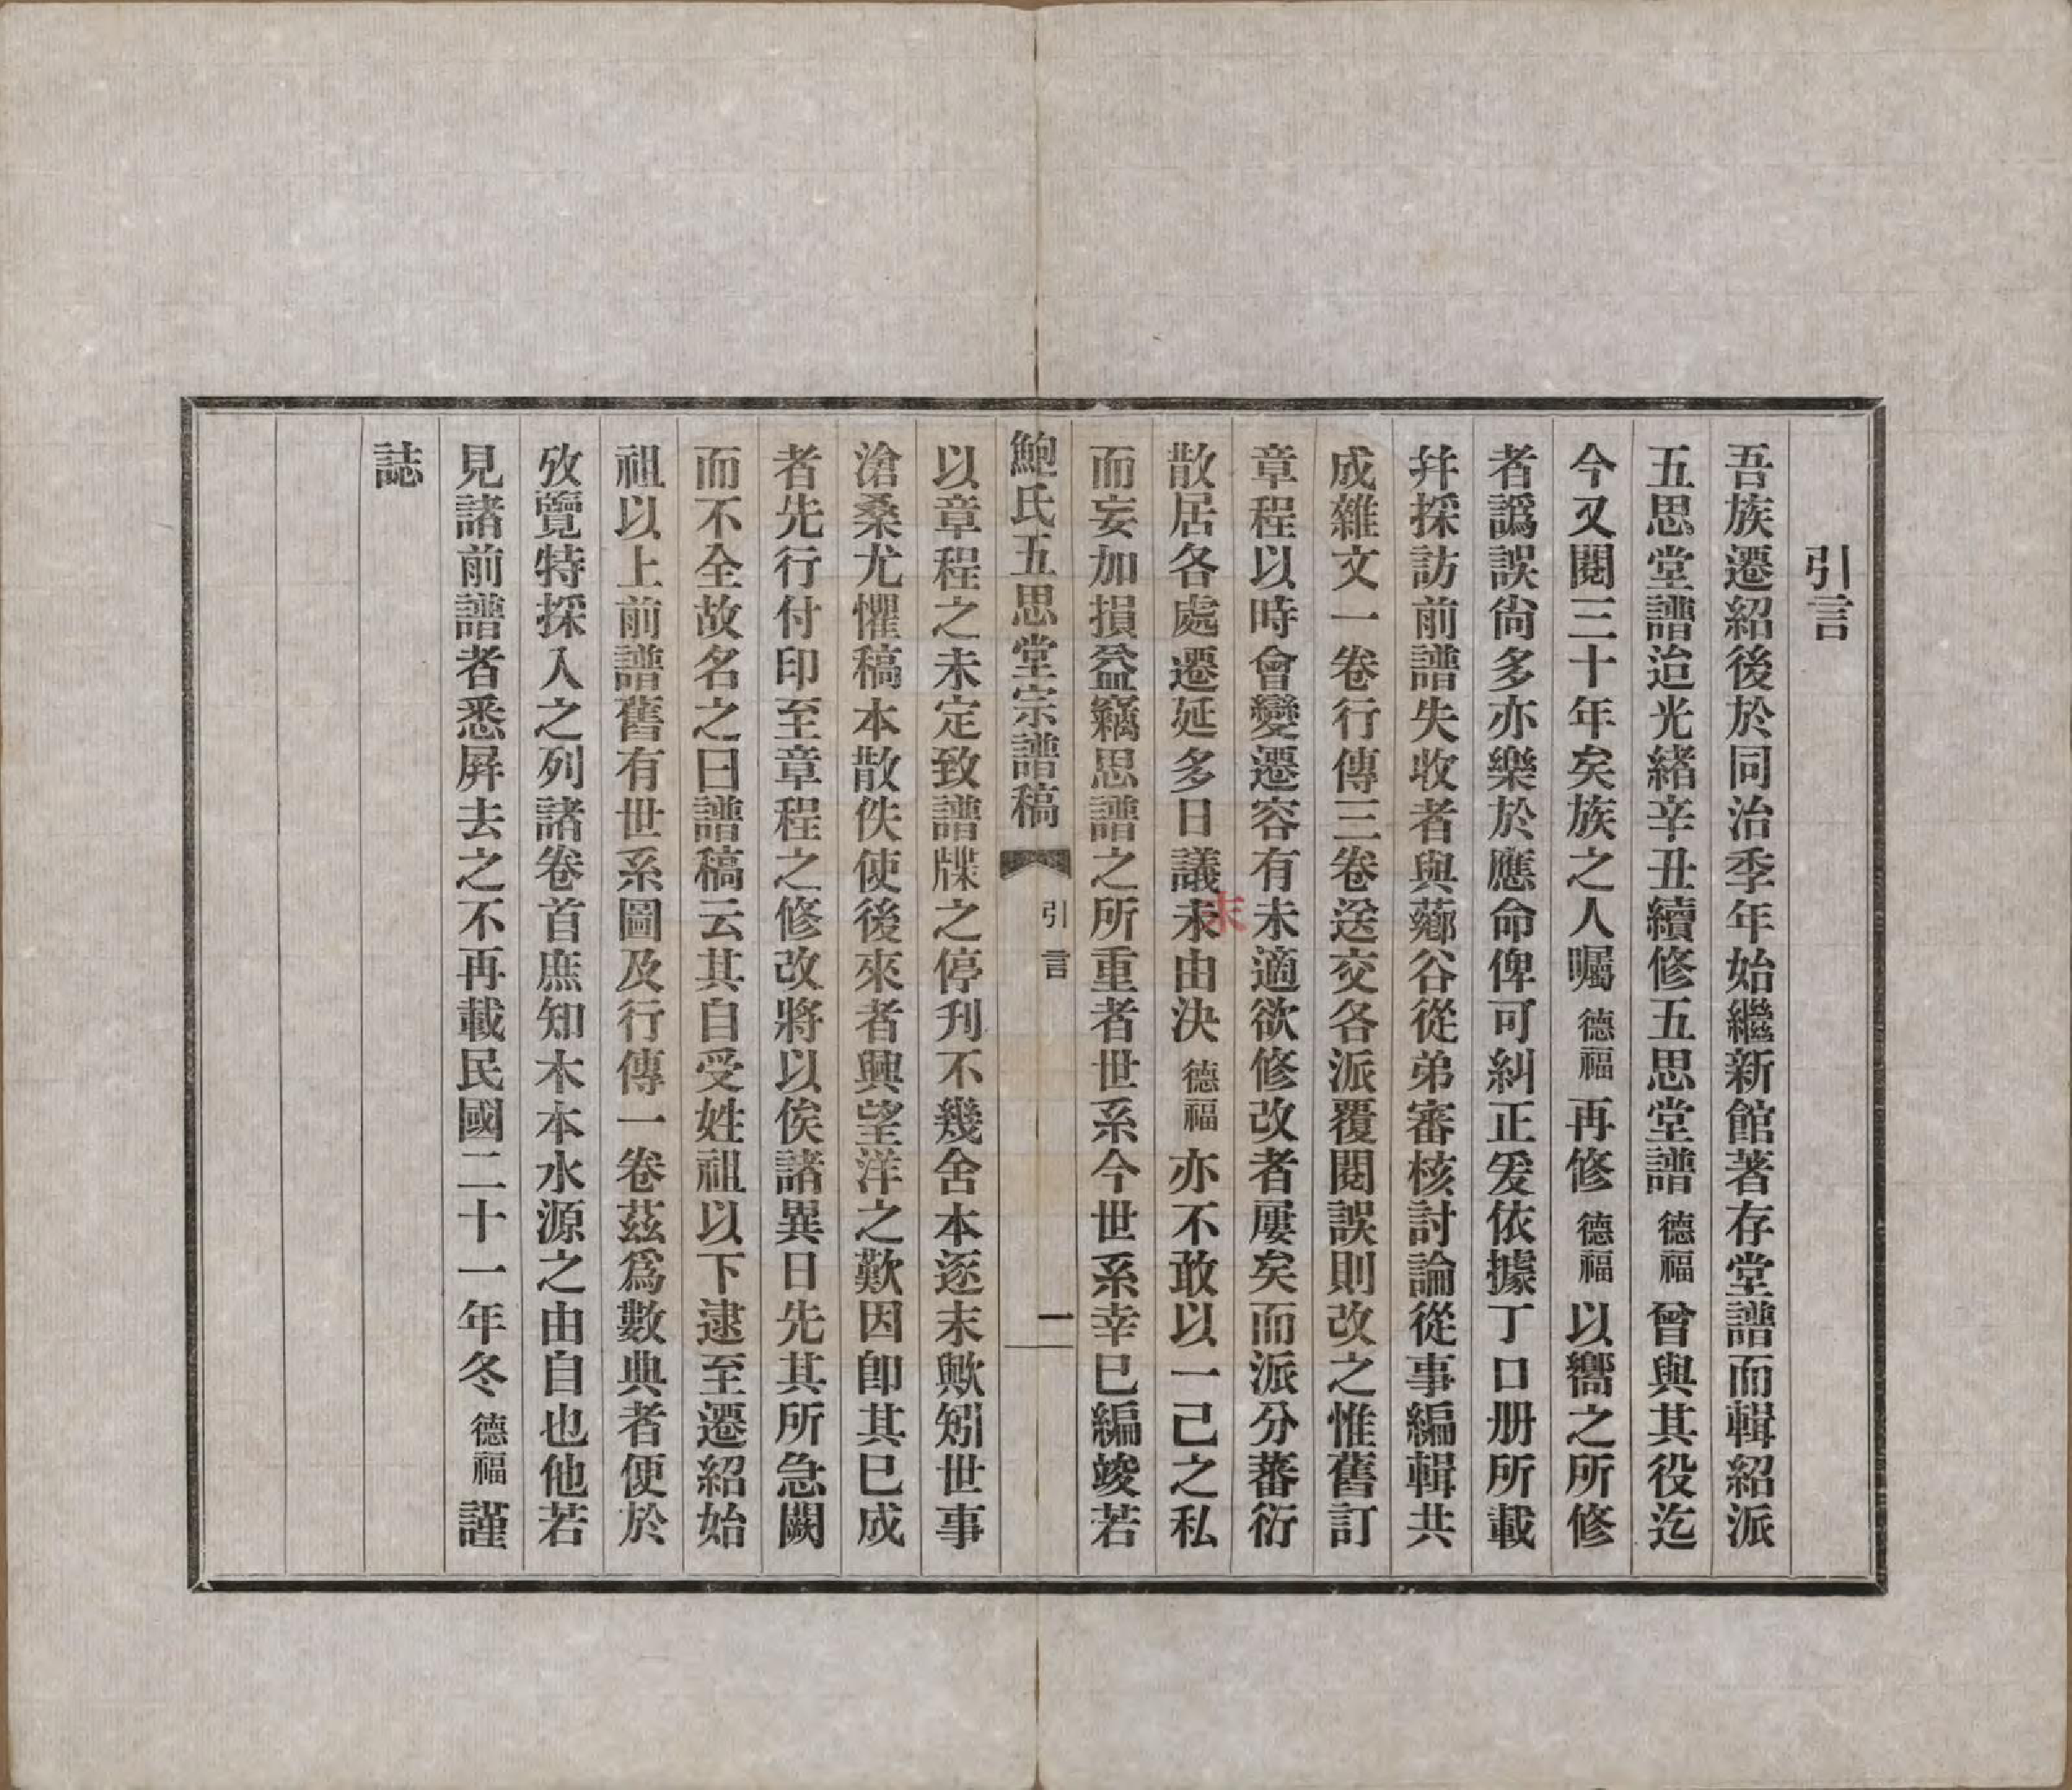 引言
吾族遷紹後於同治季年始繼新館著存堂譜而輯紹派
五思堂譜迨光緒辛丑續修五思堂譜德福曾與其役迄
今又閱三十年矣族之人囑德福再修德福以嚮之所修
者譌誤尙多亦樂於應命俾可糾正爰依據丁口册所載
幷採訪前譜失收者與薌谷從弟審核討論從事編輯共
成雜文一卷行傳三卷送交各派覆閱誤則改之惟舊訂
章程以時會變遷容有未適欲修改者屢矣而派分蕃衍
散居各處遷延多日議未由決德福亦不敢以一己之私
末
而妄加損益竊思譜之所重者世系今世系幸已編竣若
鮑氏五思堂宗譜稿
引言
一
以章程之未定致譜牒之停刋不幾舍本逐末歟矧世事
滄桑尤懼稿本散佚使後來者興望洋之歎因卽其已成
者先行付印至章程之修改將以俟諸異日先其所急闕
而不全故名之曰譜稿云其自受姓祖以下逮至遷紹始
祖以上前譜舊有世系圖及行傳一卷茲爲數典者便於
攷覽特採入之列諸卷首庶知木本水源之由自也他若
見諸前譜者悉屛去之不再載民國二十一年冬德福謹
誌